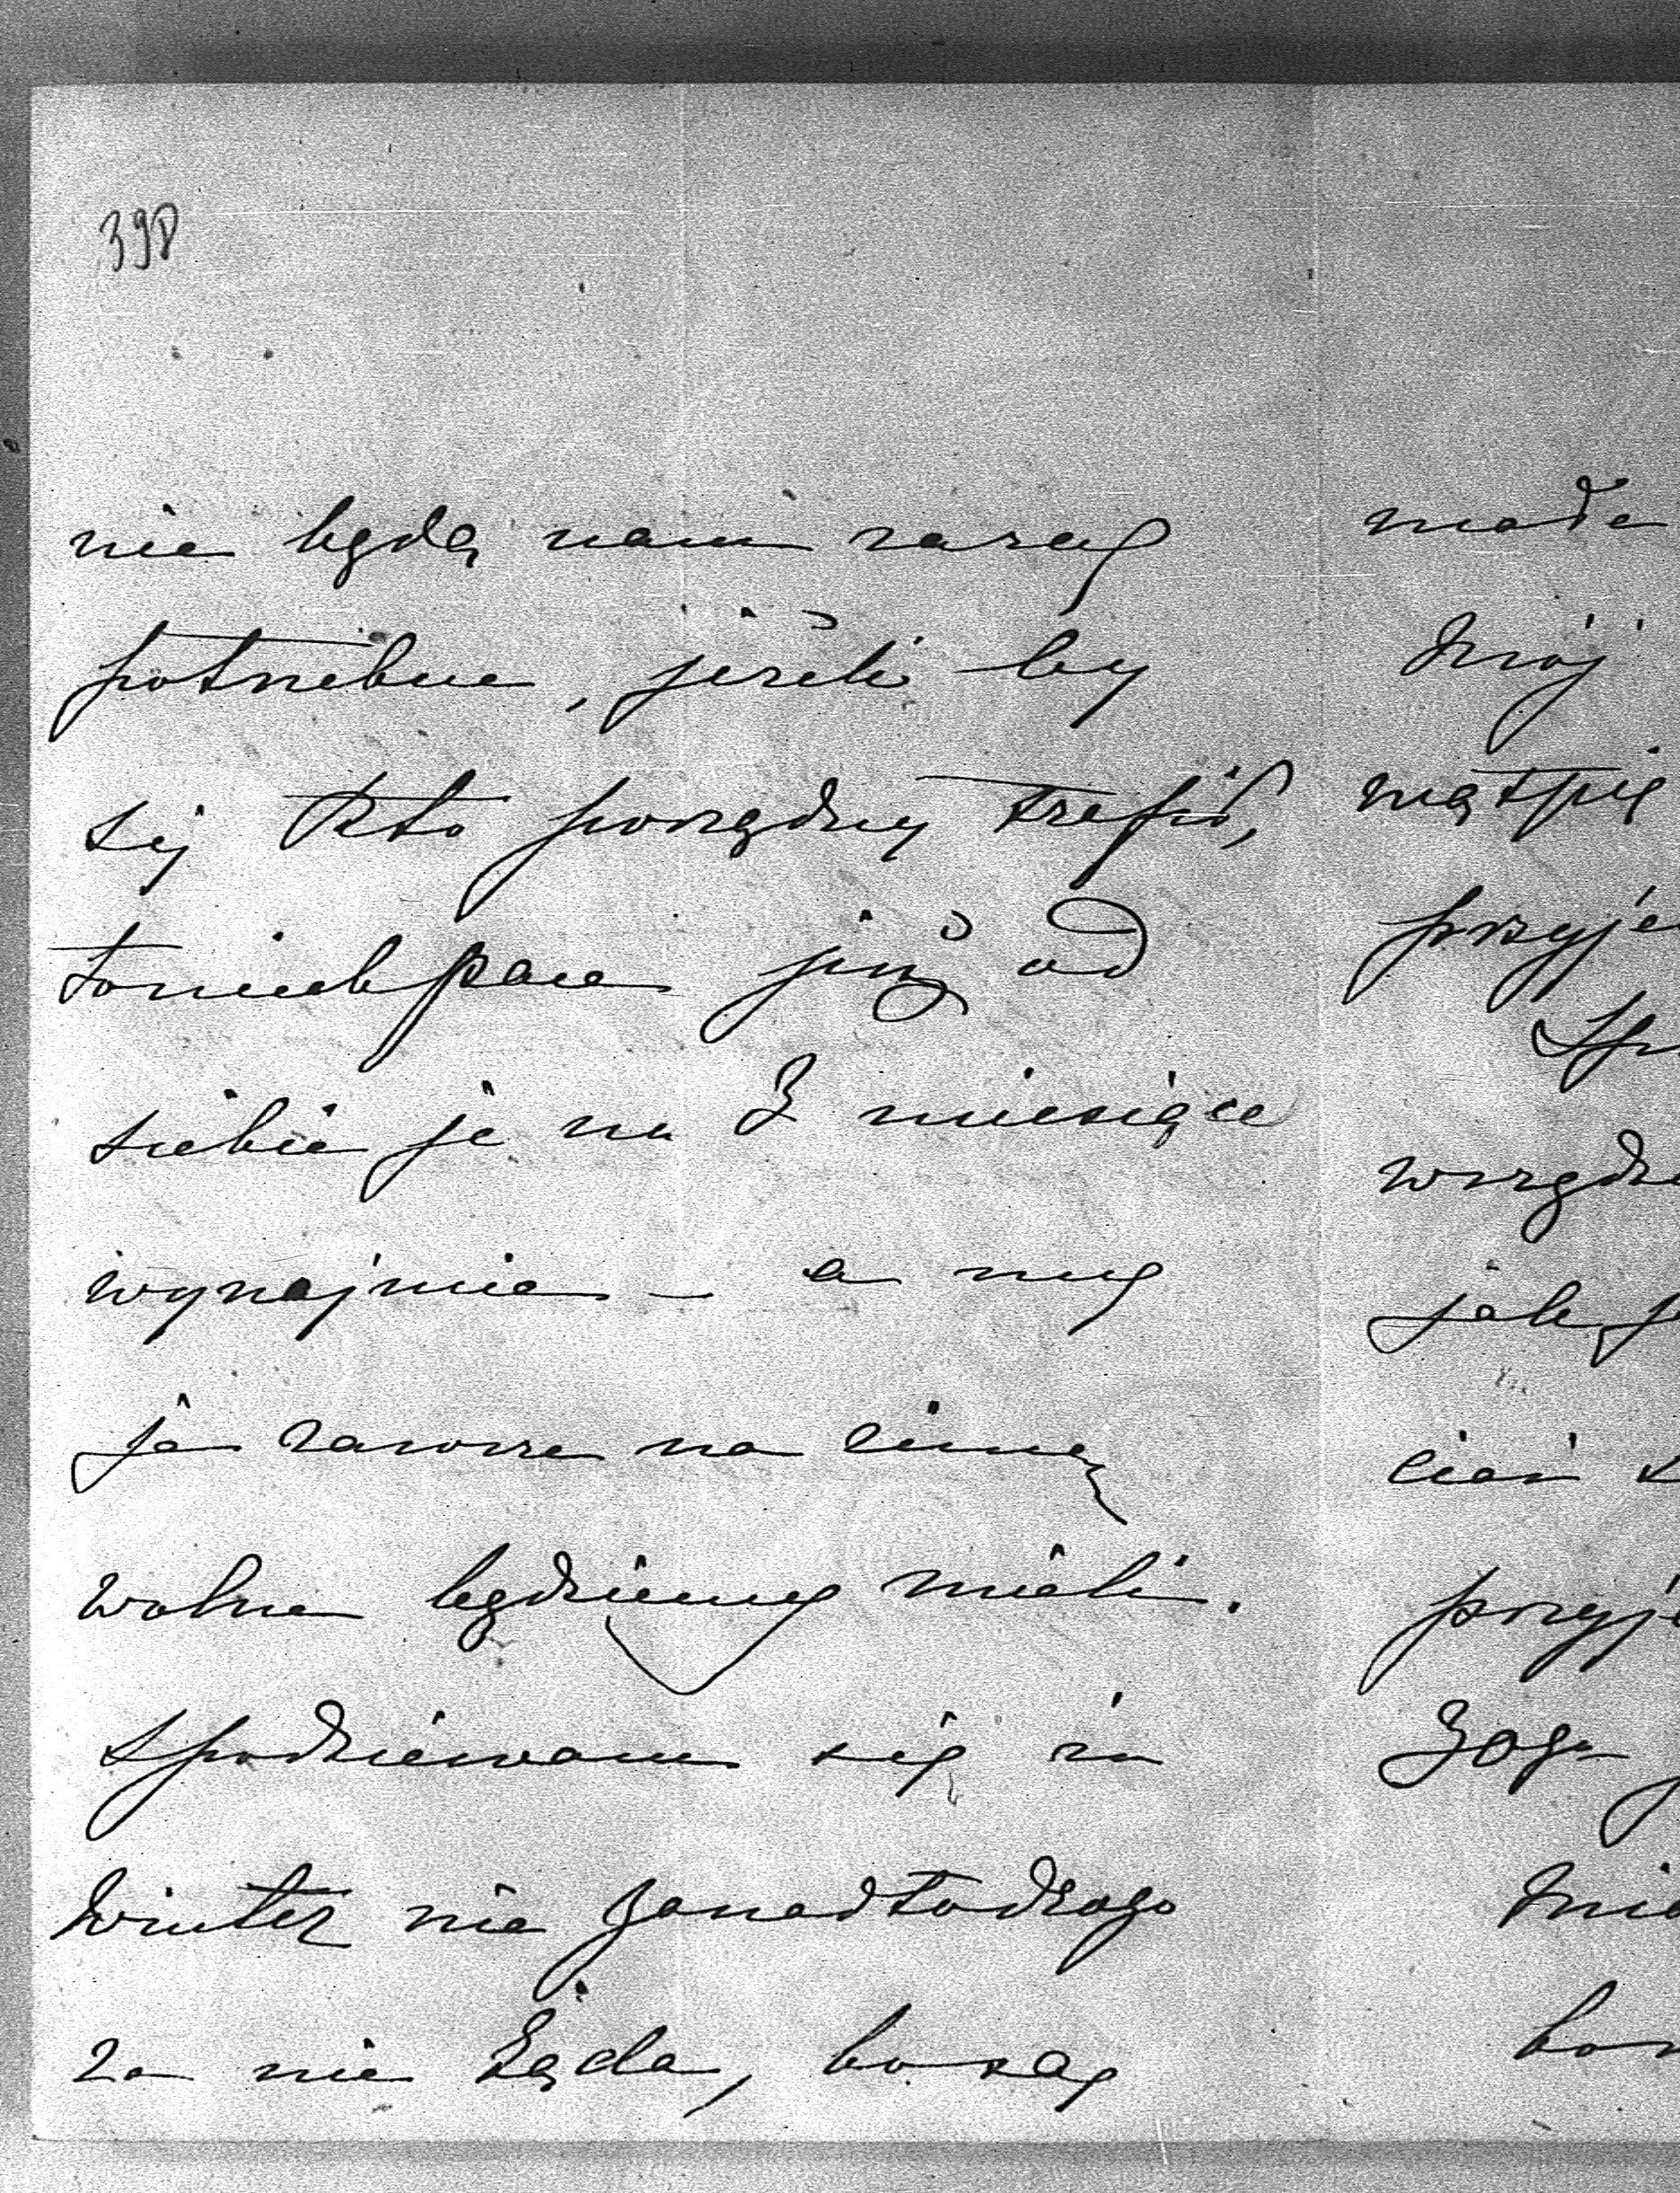 398
nie będą nam zaraz
potrzebne, jeżeli by
się kto porządny trafił,
to niech pan już od
siebie je na 3 miesiące
wynajmie – a my
je zawsze na zimę
wolne będziemy mieli.
Spodziewam się że
Winter nie zanadto drogo
za nie żąda, bo są
może
Mój
wątpię
przyje
Sp
wszędzie
jak p
cień
przyj